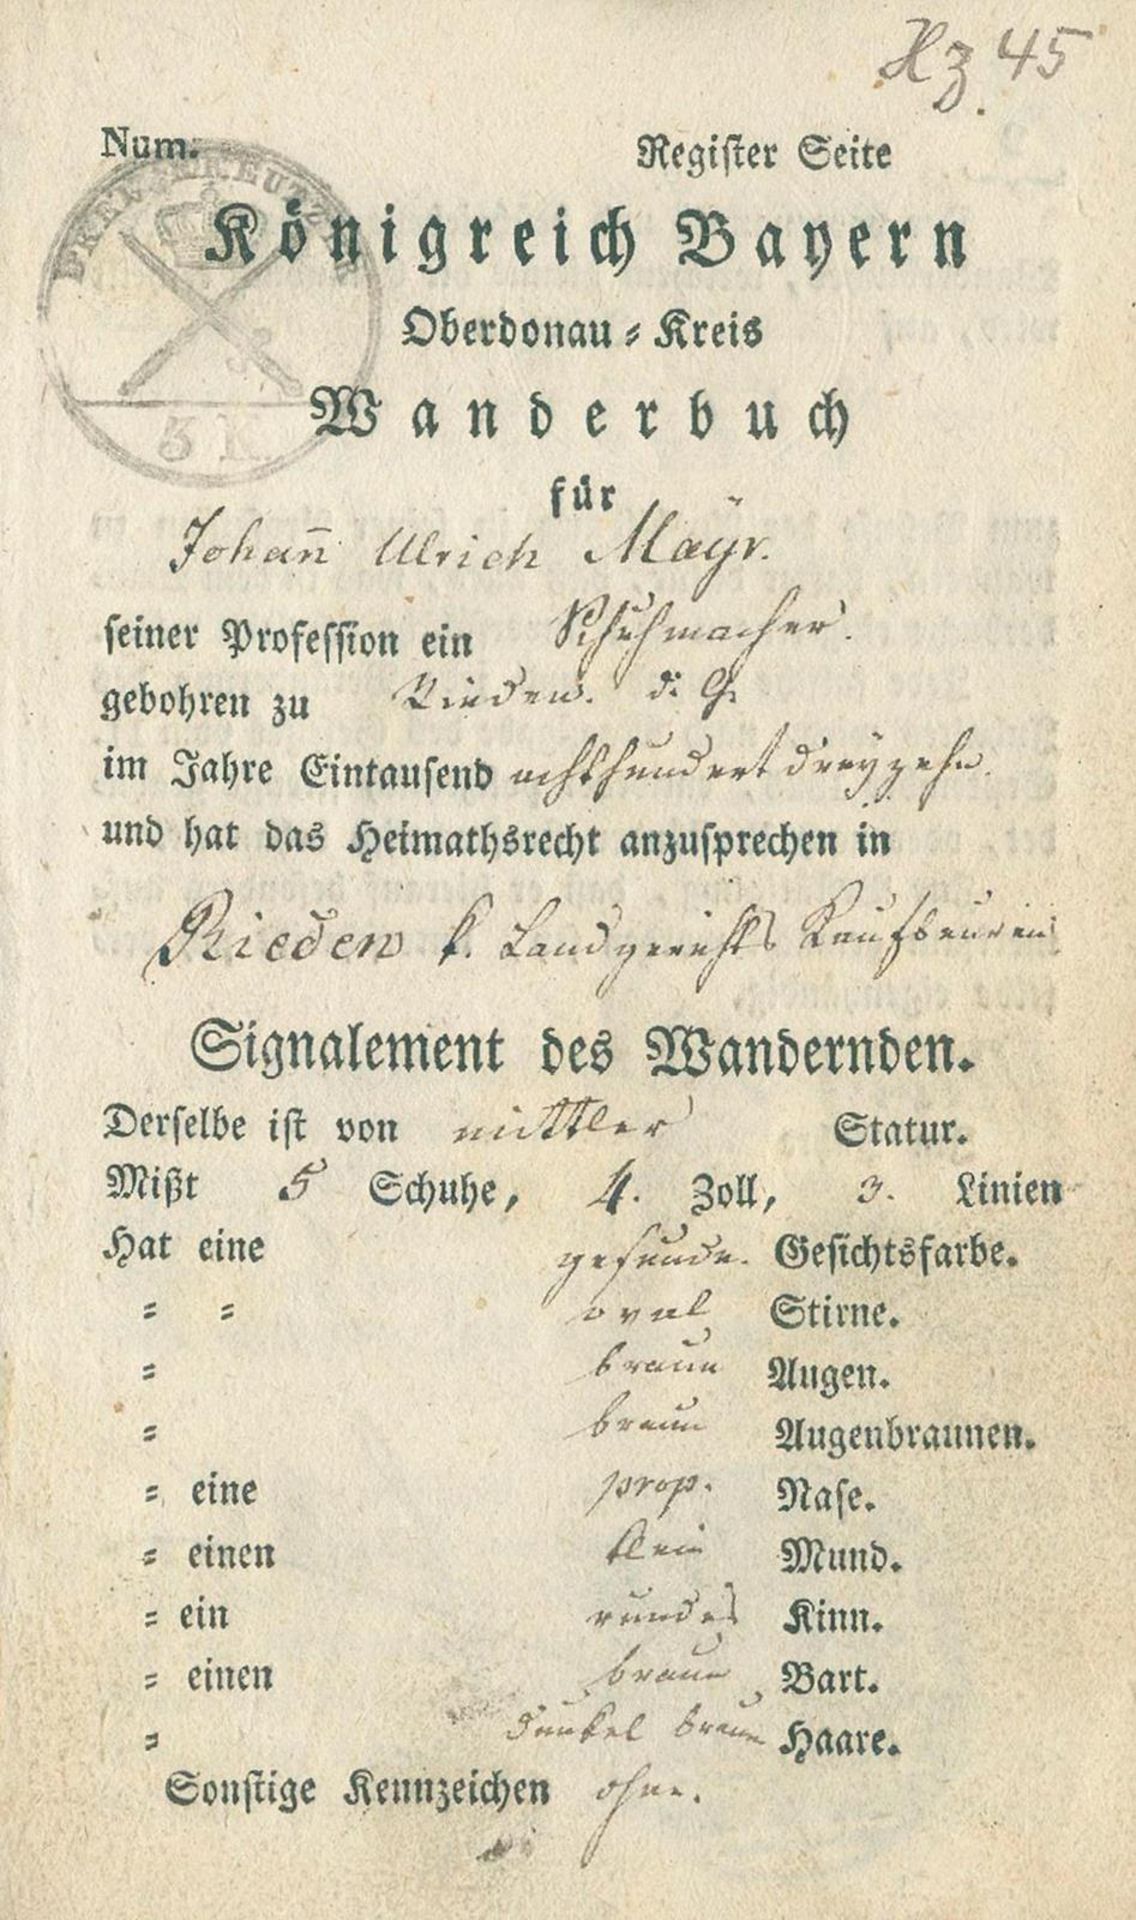 Hz 45
Num. Register Seite
DREI KREUTZER
Königreich Bayern
Oberdonau = Kreis
Wanderbuch
für
Johan̅ Ulrich Maÿr.
seiner Profession ein Schuhmacher.
gebohren zu Rieden. d. G.
im Jahre Eintausend achthundert dreyzehn.
und hat das Heimathsrecht anzusprechen in
Rieden k. Landgerichts Kaufbeuren
Signalement des Wandernden.
Derselbe ist von mittler Statur.
Mißt 5 Schuhe, 4. Zoll, 3. Linien
Hat eine gesunde. Gesichtsfarbe.
= = oval Stirne.
= braun Augen.
= braun Augenbraunen.
= eine prop. Nase.
= einen klein Mund.
= ein rundes Kinn.
= einen braun Bart.
= dunkel braun Haare.
Sonstige Kennzeichen ohne.